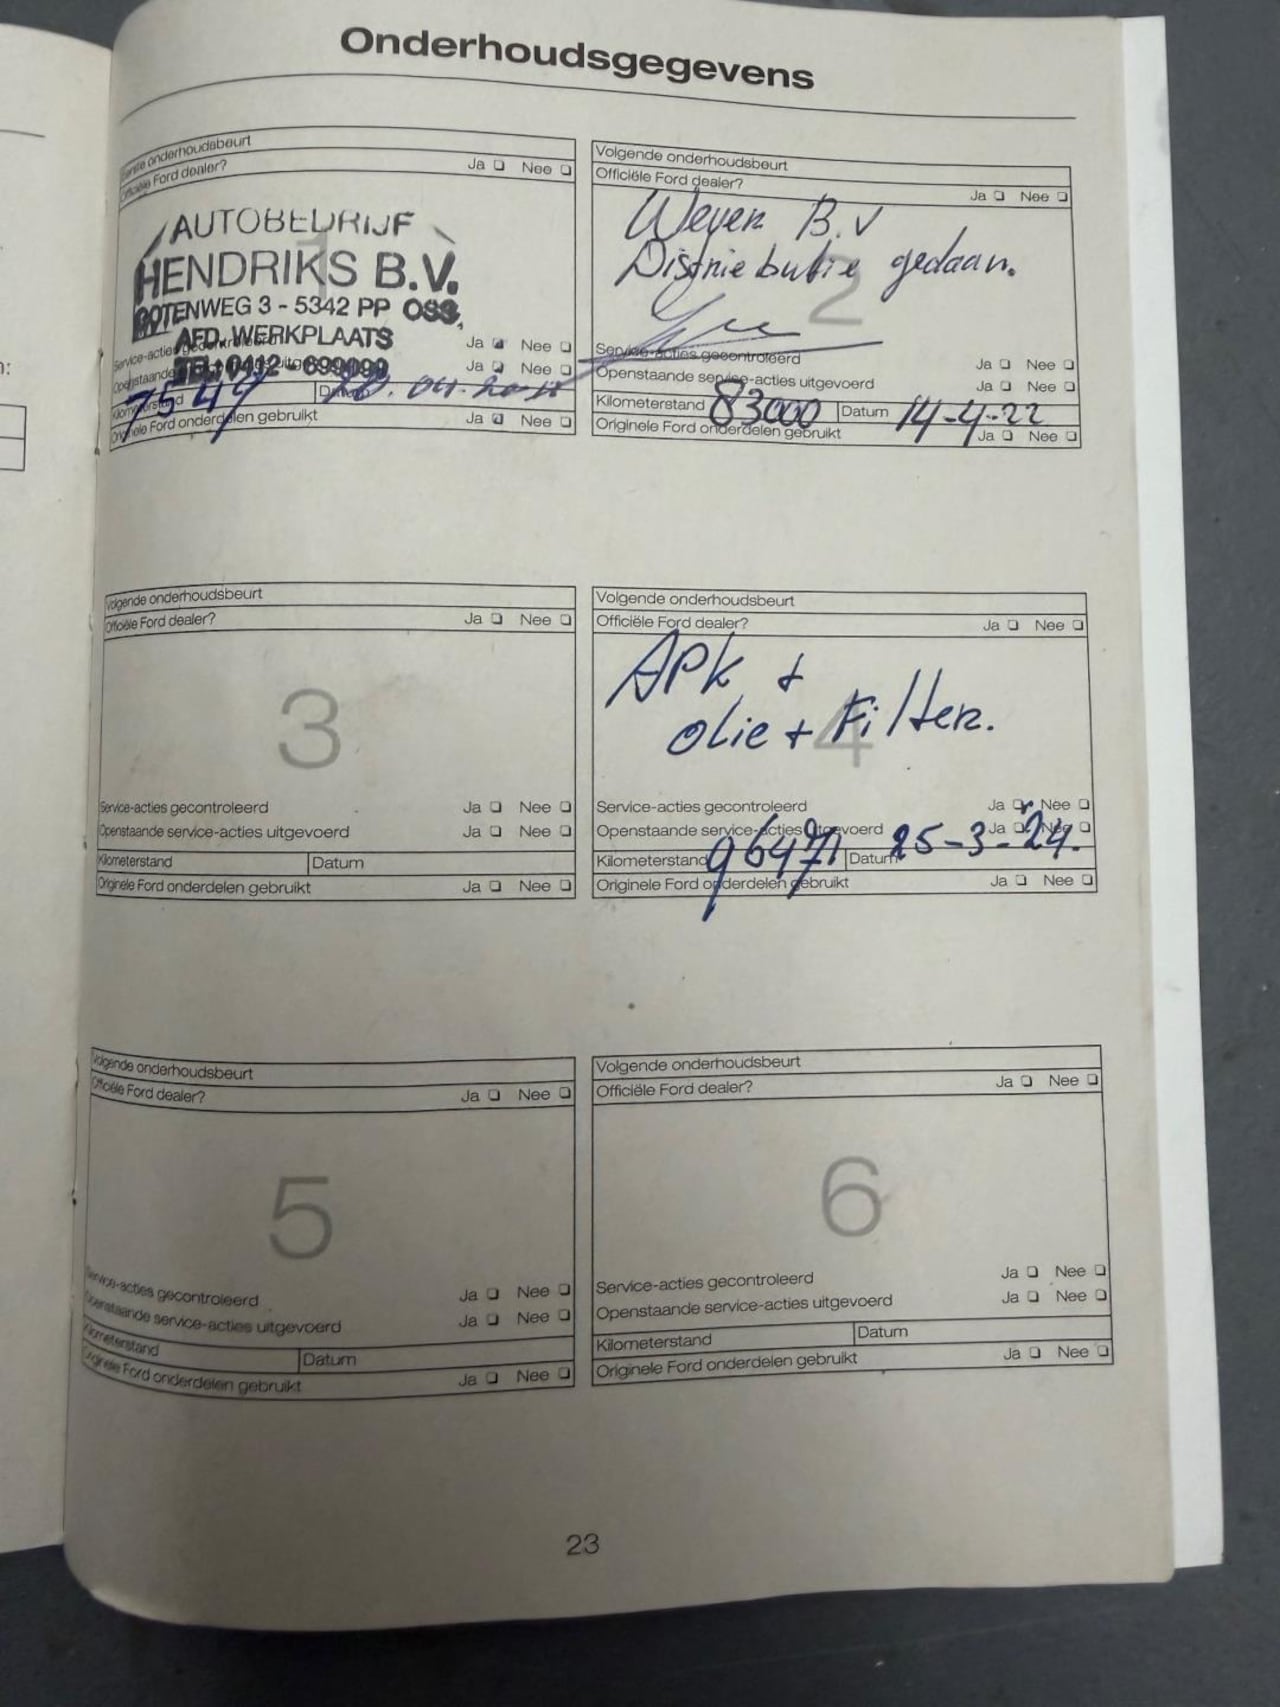 Onderhoudsgegevens
Eerste onderhoudsbeurt
Officiële Ford dealer? Ja Nee
1
AUTOBEDRIJF
HENDRIKS B.V.
3 - 5342 PP OSS,
AFD. WERKPLAATS
TEL: 0412 - 699099
Service-acties gecontroleerd Ja Nee
Openstaande Ja Nee
Kilometerstand
Originele Ford onderdelen gebruikt Ja Nee
Volgende onderhoudsbeurt
Officiële Ford dealer? Ja Nee
B.V
Distriebutie gedaan.
2
Service-acties gecontroleerd Ja Nee
Openstaande service-acties uitgevoerd Ja Nee
Kilometerstand 83000 Datum 14-4-22
Originele Ford onderdelen gebruikt Ja Nee
Volgende onderhoudsbeurt
Officiële Ford dealer? Ja Nee
3
Service-acties gecontroleerd Ja Nee
Openstaande service-acties uitgevoerd Ja Nee
Kilometerstand Datum
Originele Ford onderdelen gebruikt Ja Nee
Volgende onderhoudsbeurt
Officiële Ford dealer? Ja Nee
APK +
olie + Filter.
4
Service-acties gecontroleerd Ja Nee
Openstaande service-acties uitgevoerd Ja Nee
Kilometerstand 96471 Datum 25-3-24.
Originele Ford onderdelen gebruikt Ja Nee
Volgende onderhoudsbeurt
Officiële Ford dealer? Ja Nee
5
Service-acties gecontroleerd Ja Nee
Openstaande service-acties uitgevoerd Ja Nee
Kilometerstand Datum
Originele Ford onderdelen gebruikt Ja Nee
Volgende onderhoudsbeurt
Officiële Ford dealer? Ja Nee
6
Service-acties gecontroleerd Ja Nee
Openstaande service-acties uitgevoerd Ja Nee
Kilometerstand Datum
Originele Ford onderdelen gebruikt Ja Nee
23